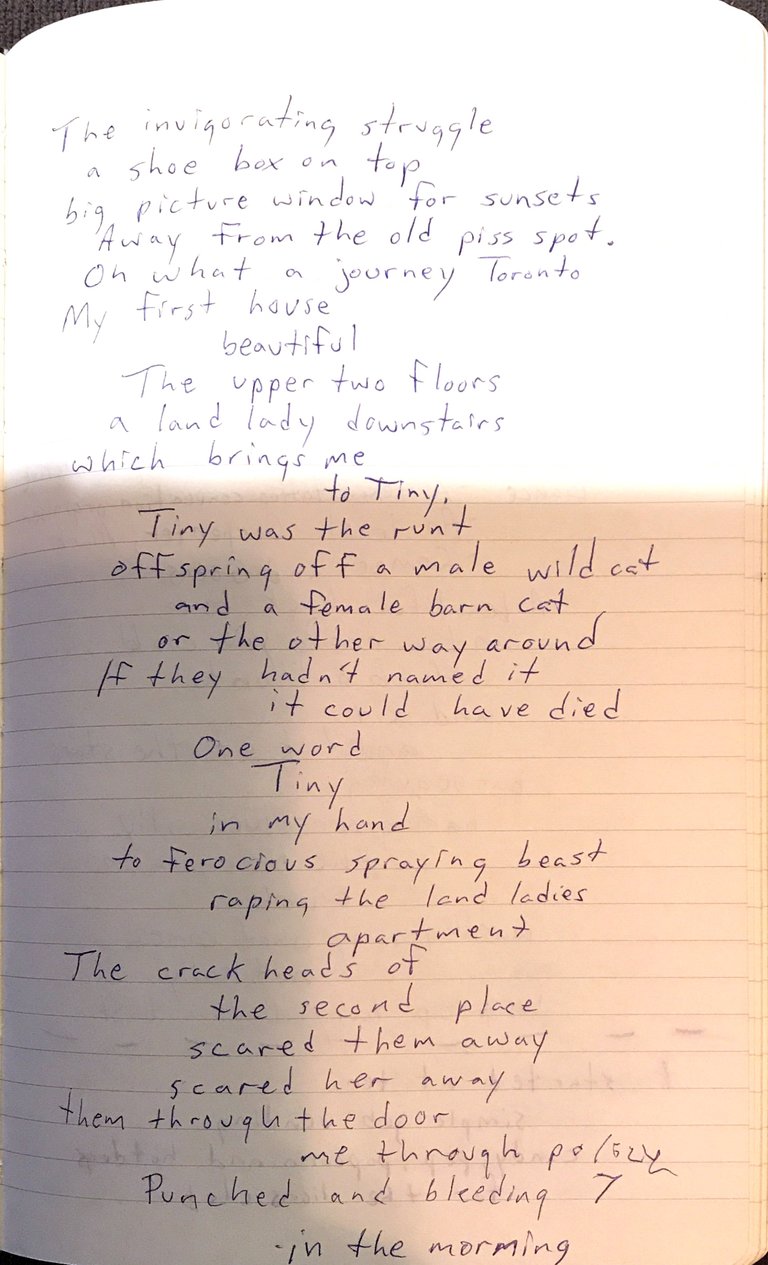 The invigorating struggle
a shoe box on top
big picture window for sunsets
Away from the old piss spot.
Oh what a journey Toronto
My first house
beautiful
The upper two floors
a land lady downstairs
which brings me
to Tiny.
Tiny was the runt
offspring off a male wild cat
and a female barn cat
or the other way around
If they hadn't named it
it could have died
One word
Tiny
in my hand
to ferocious spraying beast
raping the land ladies
apartment
The crack heads of
the second place
scared them away
scared her away
them through the door
me through
Punched and bleeding 7
in the morning